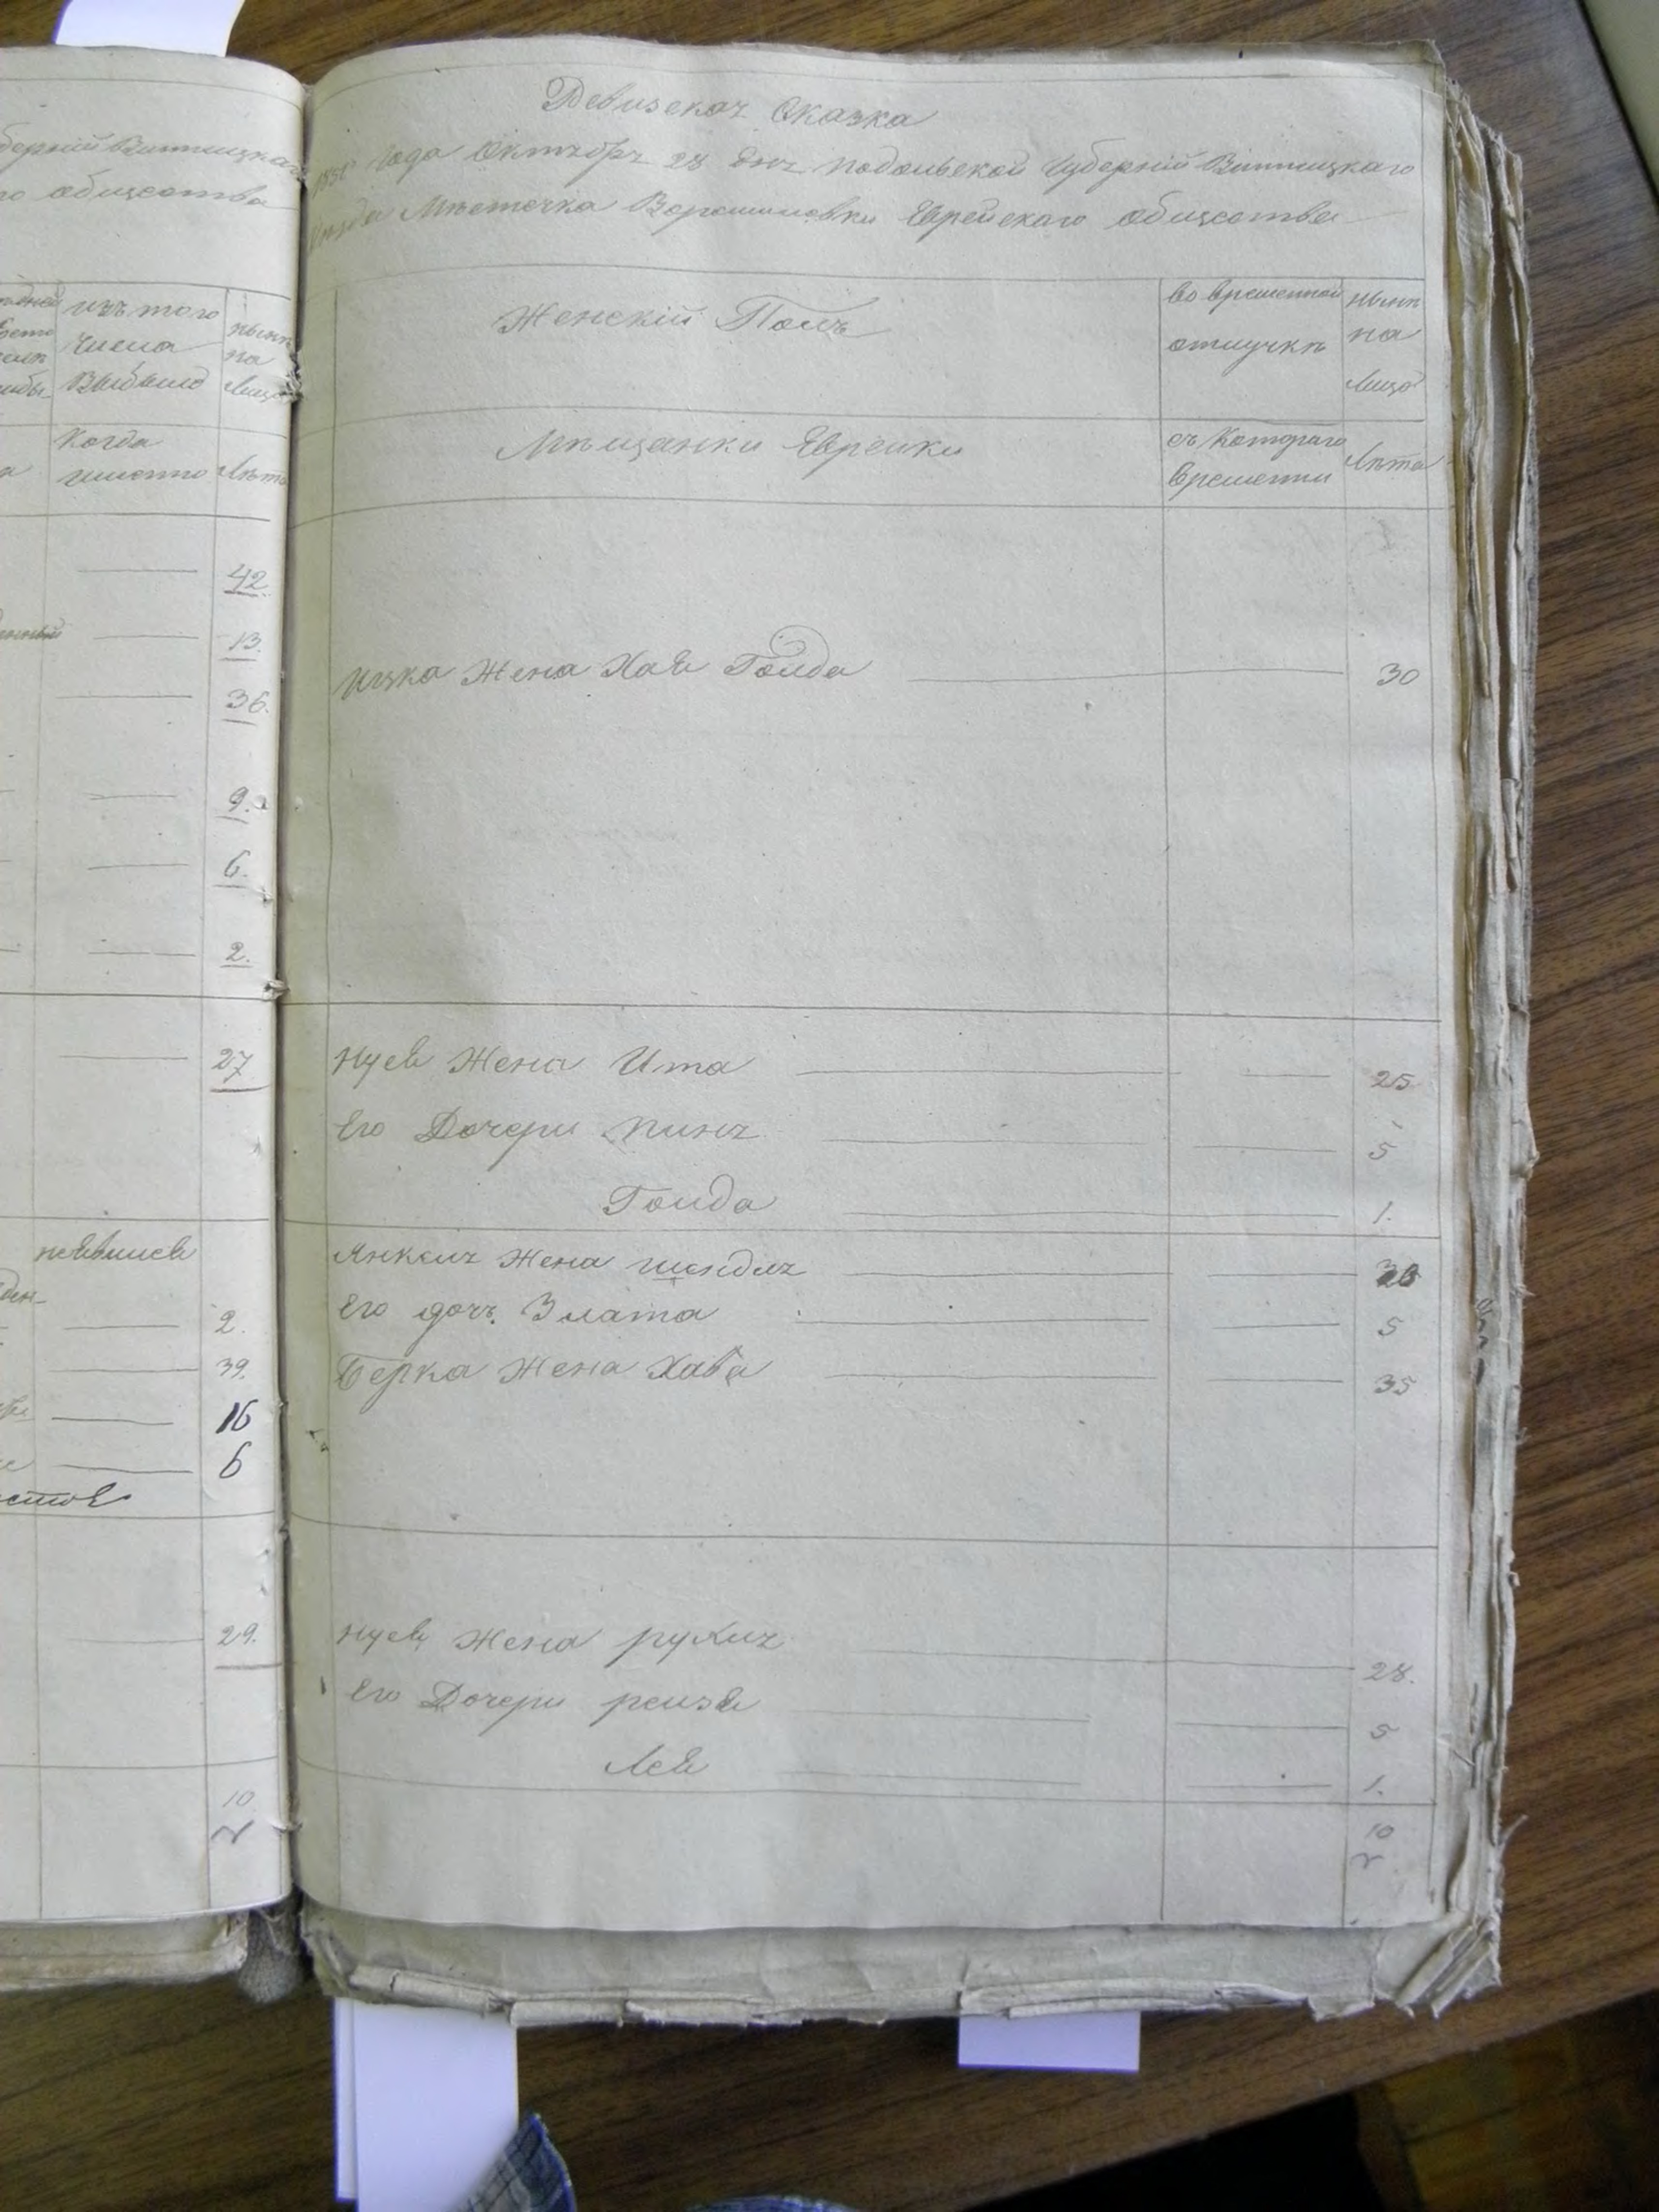 берній Винницкаго
го общества
изъ того
числа
выбыло
нынѣ
на
лицо
когда
именно
лѣта
42.
13.
36.
9.
6.
2.
27
неявился
2.
39.
16
6
29.
10
Ревизская Сказка
1850 Года Октября 28 дня Подольской Губерній Винницкаго
Уезда Мѣстечка Ворошиловки Еврейскаго общества
Женскій Полъ
во временной
отлучкѣ
нынѣ
на
лицо
Мѣщанки Еврейки
съ котораго
времени
лѣта
Ицка Жена Хая Голда 30
Нуся Жена Ита 25
Его Дочери Пиня 5
Голда 1.
Янкеля Жена Шендля
Его дочь Злата 5
Берка Жена Хава 35
Нуся Жена Рухля 28.
Его Дочери Рейзя 5
Лея 1.
10